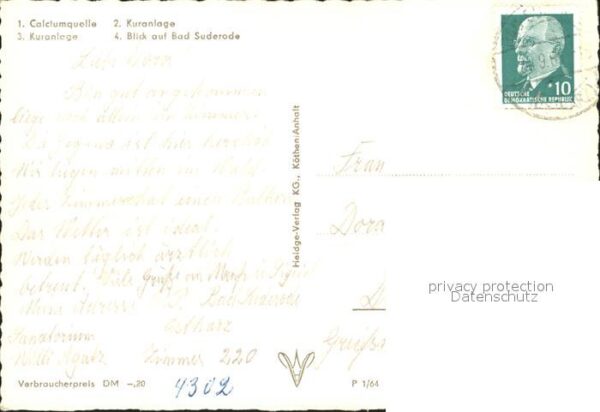 1. Calciumquelle 2. Kuranlage
3. Kuranlage 4. Blick auf Bad Suderode
Liebe Dora
Bin gut angekommen
liege und allein im Zimmer
Die Gegend ist hier herrlich
Wir liegen mitten im Wald.
Jedes Zimmer hat einen Balkon
Das Wetter ist ideal.
Werden täglich ärztlich
betreut. Viele Grüße
Meine Adresse Bad Suderode
Ostharz
Sanatorium
Willi Agatz Zimmer 220
4302
Verbraucherpreis DM -,20
Heldge-Verlag KG., Köthen/Anhalt
P 1/64
10
DEUTSCHE
DEMOKRATISCHE REPUBLIK
Frau
Dora
privacy protection
Datenschutz